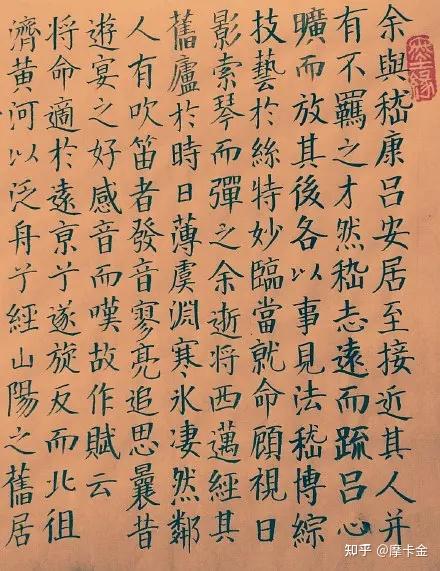 墨緣
余與嵇康呂安居至接近其人并
有不羈之才然嵇志遠而疏呂心
曠而放其後各以事見法嵇博綜
技藝於絲特妙臨當就命顧視日
影索琴而彈之余逝将西邁經其
舊廬於時日薄虞淵寒氷凄然鄰
人有吹笛者發音寥亮追思曩昔
遊宴之好感音而嘆故作賦云
将命適於遠京兮遂旋反而北徂
濟黃河以泛舟兮經山陽之舊居
知乎 @摩卡金